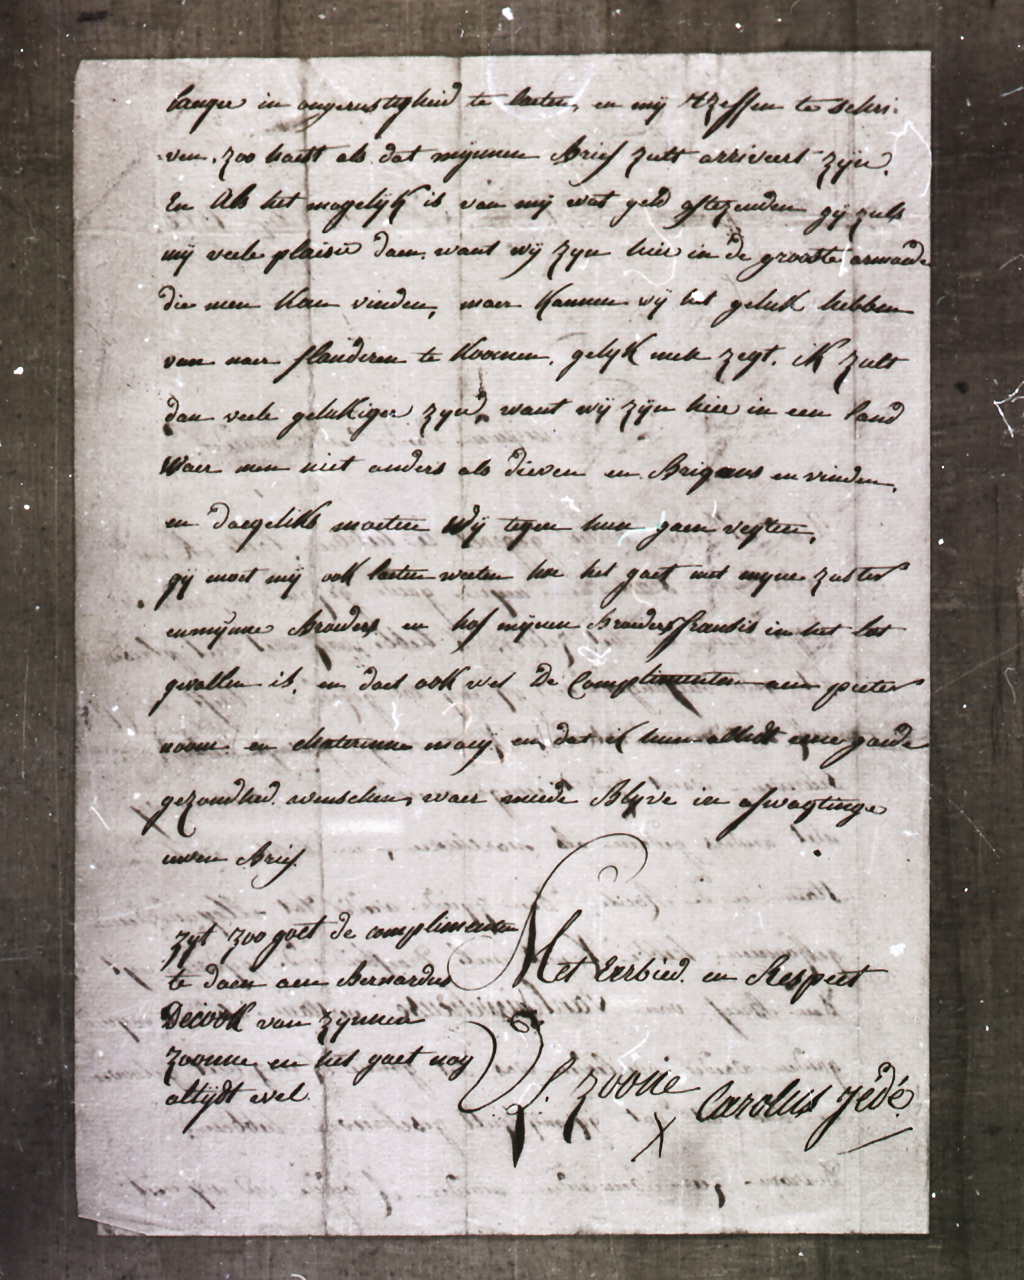 langer in ongerustigheid te laeten, en mij t zeffen te schri-
ven, zoo haest als dat mijnnen Brief zult arriveert zijn.
En Als het mogelijk is van mij wat geld aftezenden gij zult
mij veele plaisir doen, want wij zijn hier in de grootste armoede
die men kan vinden, maer konnen wij het geluk hebben
van naer flanderen te koomen, gelijk men zegt, ik zult
dan veele gelukiger zijn, want wij zijn hier in een land
Waer men niet anders als dieven en Brigans en vinden,
en daegeliks moeten Wij tegen hun gaen vegten,
gij moet mij ook laeten weeten hoe het gaet met mijne zuster
en mijnne Broeders, en hof mijnen Broeder fransis in het lot
gevallen is, en doet ook wel De Complimenten aen pieter
noom en Materinne maeij, en dat ik hun altijdt eene goede
gezondhed wenschen, waer meede Blijve in afwagtinge
uwen Brief.
zijt zoo goet de complimenten
te doen aen Bernardus
Decook van zijnnen
zoonne en het gaet nog
altijdt wel.
Met Eerbied en Respect
UL. zoone Carolus Jédé
X